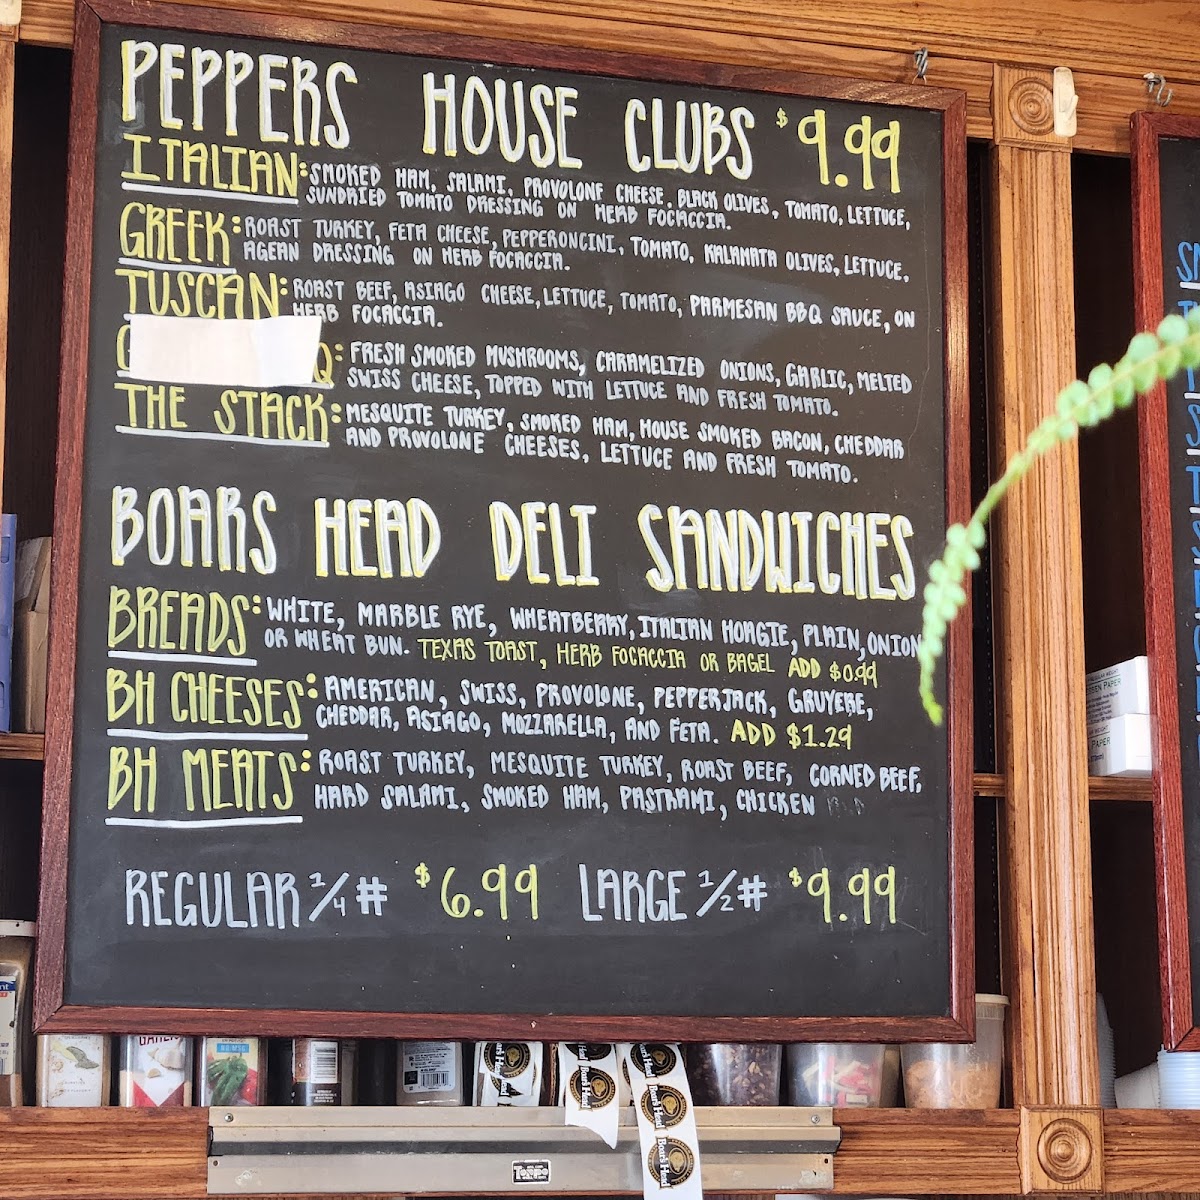 PEPPERS HOUSE CLUBS $9.99
ITALIAN: SMOKED HAM, SALAMI, PROVOLONE CHEESE, BLACK OLIVES, TOMATO, LETTUCE,
SUNDRIED TOMATO DRESSING ON HERB FOCACCIA.
GREEK: ROAST TURKEY, FETA CHEESE, PEPPERONCINI, TOMATO, KALAMATA OLIVES, LETTUCE.
AGEAN DRESSING ON HERB FOCACCIA.
TUSCAN: ROAST BEEF, ASIAGO CHEESE, LETTUCE, TOMATO, PARMESAN BBQ SAUCE, ON
HERB FOCACCIA.
FRESH SMOKED MUSHROOMS, CARAMELIZED ONIONS, GARLIC, MELTED
SWISS CHEESE, TOPPED WITH LETTUCE AND FRESH TOMATO.
THE STACK: MESQUITE TURKEY, SMOKED HAM, HOUSE SMOKED BACON, CHEDDAR
AND PROVOLONE CHEESES, LETTUCE AND FRESH TOMATO.
BOARS HEAD DELI SANDWICHES
BREADS: WHITE, MARBLE RYE, WHEATBERRY, ITALIAN HOAGIE, PLAIN, ONION
OR WHEAT BUN. TEXAS TOAST, HERB FOCACCIA OR BAGEL ADD $0.99
BH CHEESES: AMERICAN, SWISS, PROVOLONE, PEPPERJACK, GRUYERE,
CHEDDAR, ASIAGO, MOZZARELLA, AND FETA. ADD $1.29
BH MEATS: ROAST TURKEY, MESQUITE TURKEY, ROAST BEEF, CORNED BEEF,
HARD SALAMI, SMOKED HAM, PASTRAMI, CHICKEN
REGULAR 1/4# $6.99 LARGE 1/2# $9.99
PAPER
GARLIC
Boar's Head
Boar's Head
Boar's Head
Boar's Head